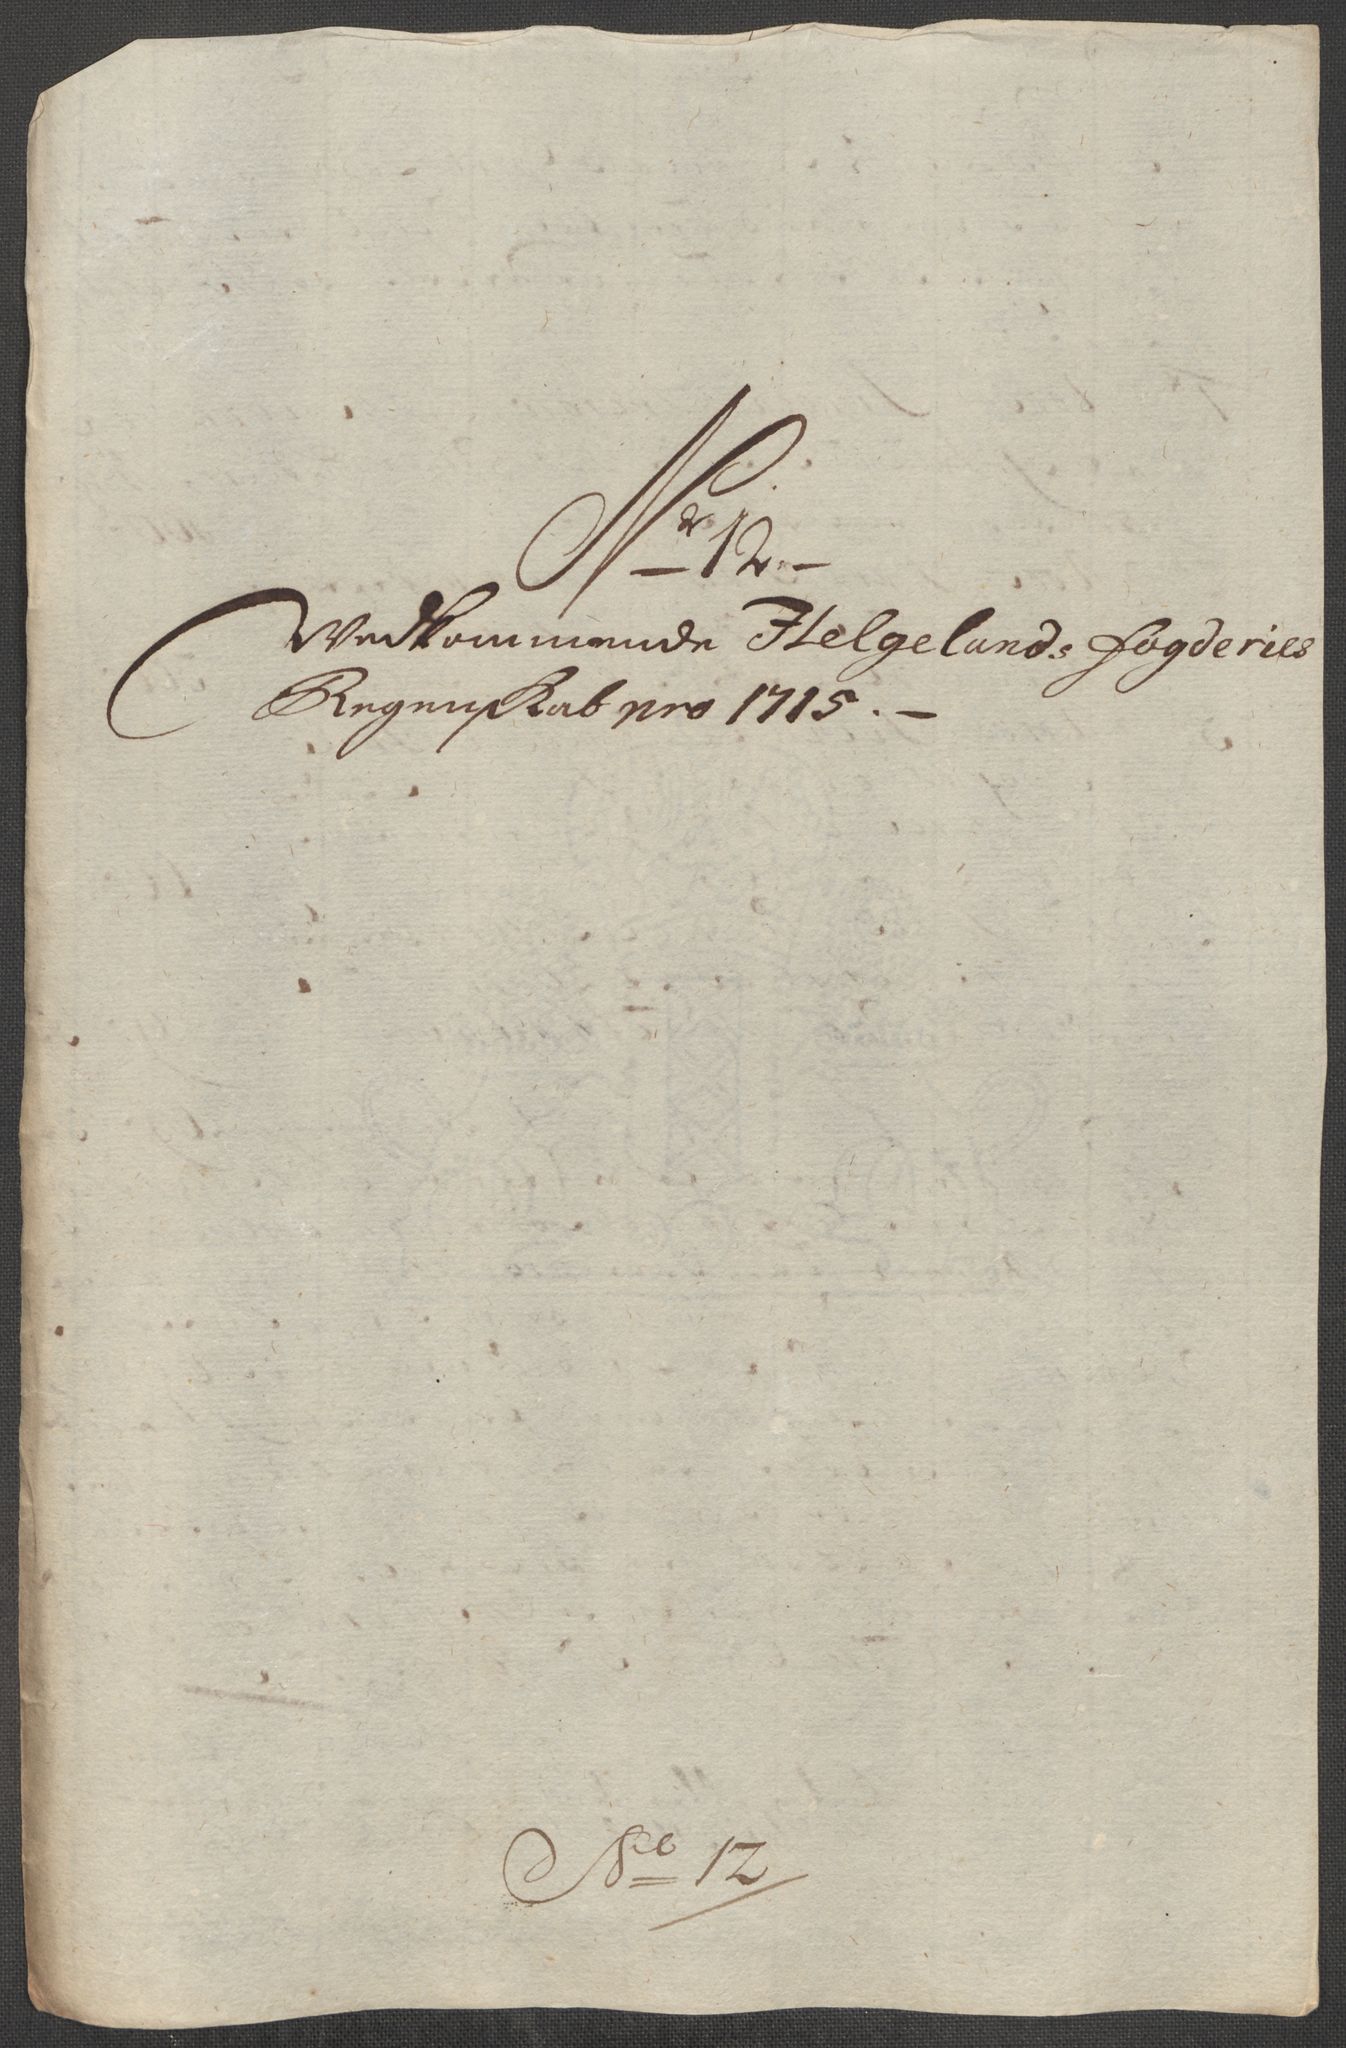 Nr 12.
Vedkommende Helgelands fogderies
Regenskab pro 1715.
No 12